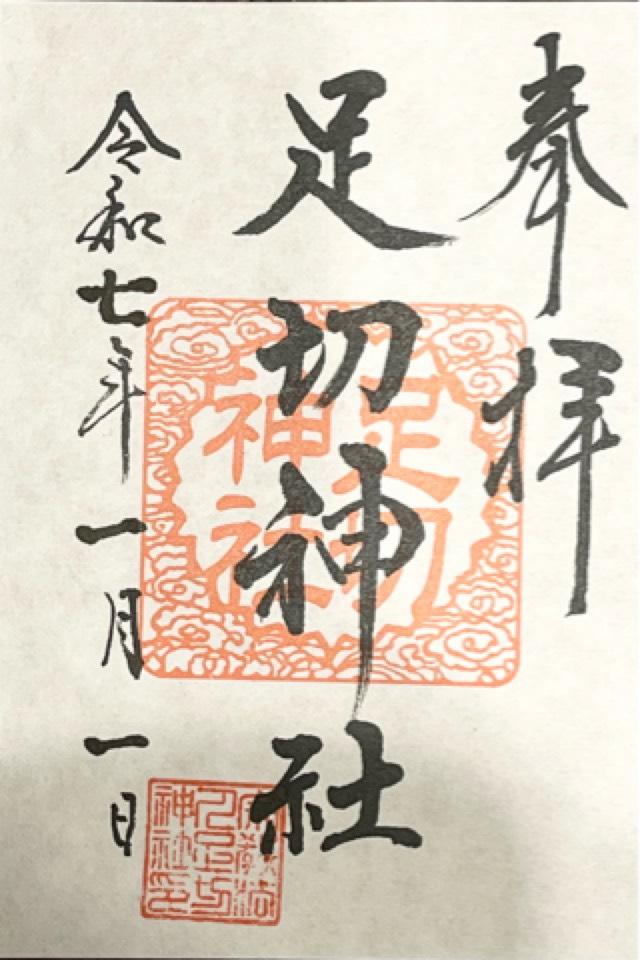 奉拝
足切神社
足切
神社
令和七年一月一日